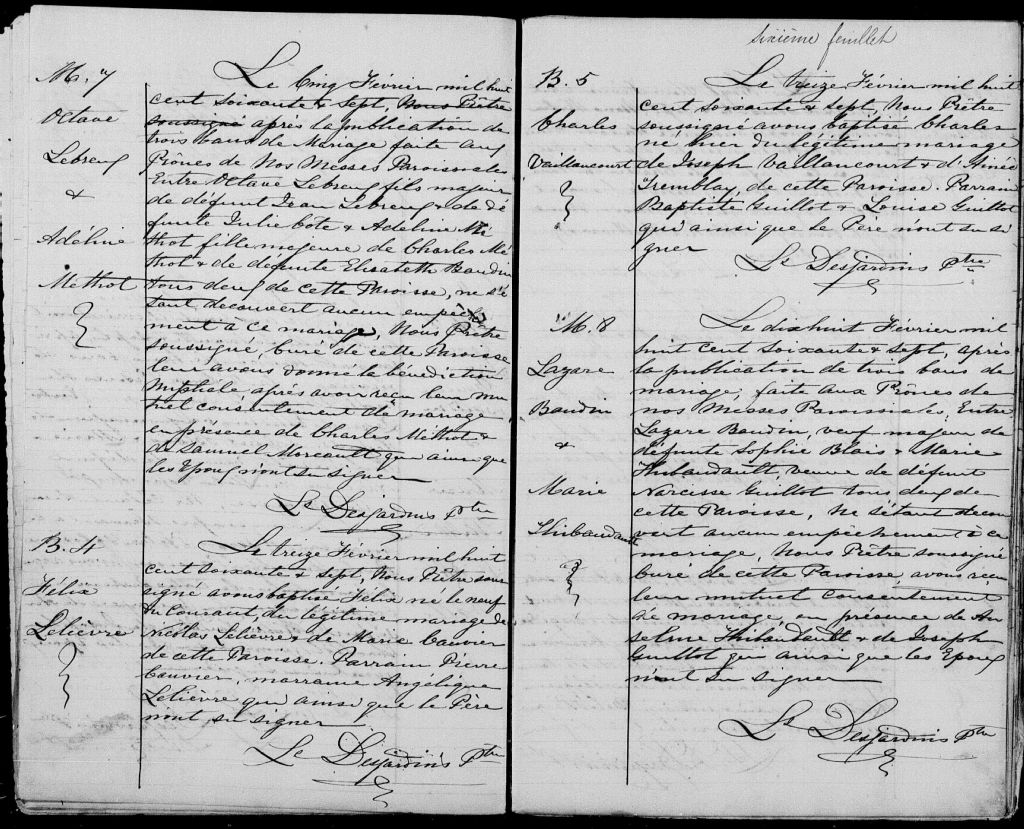 M. 7
Octave
Lebreux
&
Adéline
Méthot
Le Cinq Février mil huit
cent soixante & sept, Nous Prêtre
soussigné après la publication de
trois bans de Mariage faite aux
Prônes de Nos Messes Paroissiales
Entre Octave Lebreux fils majeur
de défunt Jean Lebreux & de dé
funte Julie Coté & Adéline Mé
thot fille majeure de Charles Mé
thot & de défunte Elisabeth Baudin
tous deux de cette Paroisse, ne s'é
tant découvert aucun empêche
ment à ce mariage, Nous Prêtre
soussigné, Curé de cette Paroisse
leur avons donné la bénédiction
Nuptiale, après avoir reçu leur mu
tuel consentement de mariage
en présence de Charles Méthot &
de Samuel Morcault qui ainsi que
les Epoux n'ont su signer
Ls Desjardins Ptre
B. 4
Félix
Lelièvre
Le treize Février mil huit
cent soixante & sept, Nous Prêtre sous
signé avons baptisé Félix né le neuf
du Courant, du légitime mariage de
Nicolas Lelièvre & de Marie Cauvier
de cette Paroisse. Parrain Pierre
Cauvier, marraine Angélique
Lelièvre qui ainsi que le Père
n'ont su signer
Ls Desjardins Ptre
sixième feuillet
B. 5
Charles
Vaillancourt
Le treize Février mil huit
cent soixante & sept Nous Prêtre
soussigné avons baptisé Charles
né hier du légitime mariage
de Joseph Vaillancourt & d'
Tremblay, de cette Paroisse. Parrain
Baptiste Guillot & Louise Guillot
qui ainsi que le Père n'ont su si
gner
Ls Desjardins Ptre
M. 8
Lazare
Baudin
&
Marie
Thibaudault
Le dixhuit Février mil
huit cent soixante & sept, après
la publication de trois bans de
mariage, faite aux Prônes de
nos Messes Paroissiales, Entre
Lazare Baudin, veuf majeur de
défunte Sophie Blais & Marie
Thibaudault, veuve de défunt
Narcisse Guillot tous deux de
cette Paroisse, ne s'étant décou
vert aucun empêchement à ce
mariage, Nous Prêtre soussigné
Curé de cette Paroisse, avons reçu
leur mutuel consentement
de mariage, en présence de An
selme Thibaudault & de Joseph
Guillot qui ainsi que les Epoux
n'ont su signer
Ls Desjardins Ptre